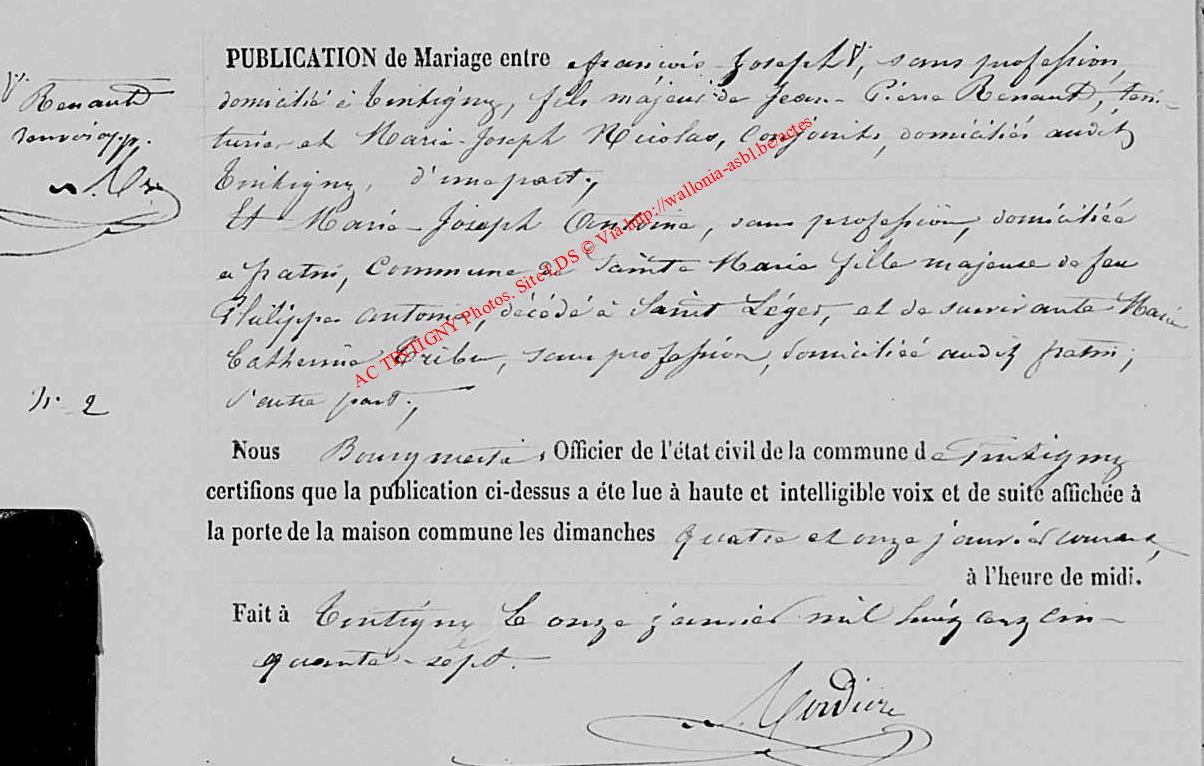 PUBLICATION de Mariage entre François-Joseph V, sans profession,
domicilié à Tintigny, fils majeur de Jean-Pierre Renault, tein-
turier et Marie-Joseph Nicolas, conjoints, domiciliés audit
Tintigny, d'une part,
Et Marie-Joseph Antoine, sans profession, domiciliée
a fratin, Commune de Sainte Marie fille majeure de feu
Philippe Antoine, décédé à Saint Léger, et de survivante Marie
Catherine, sans profession, domiciliée audit fratin;
d'autre part,
V. Renault
renvoi app.
N. 2
Nous Bourgmestre, Officier de l'état civil de la commune de Tintigny
certifions que la publication ci-dessus a éte lue à haute et intelligible voix et de suite affichée à
la porte de la maison commune les dimanches quatre et onze janvier courant,
à l'heure de midi.
Fait à Tintigny le onze janvier mil huit cent cin-
quante-sept.
AC TINTIGNY Photos. Site LDS © Via http://wallonia-asbl.be/actes